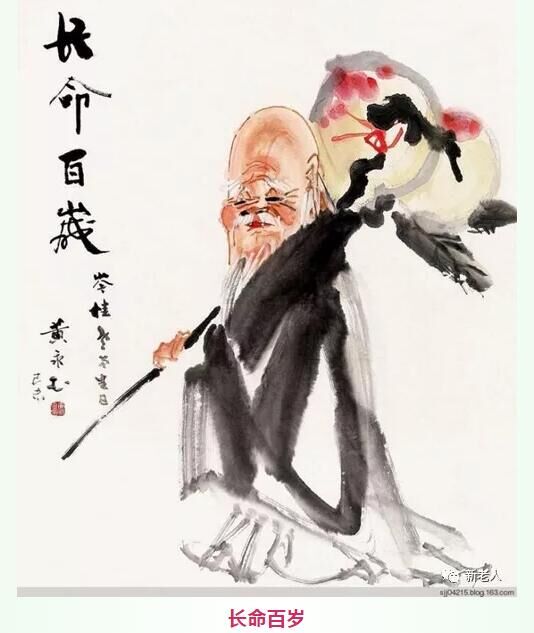 长命百岁
岑桂老弟生日
黄永玉
己未
新老人
sjj04215.blog.163.com
长命百岁